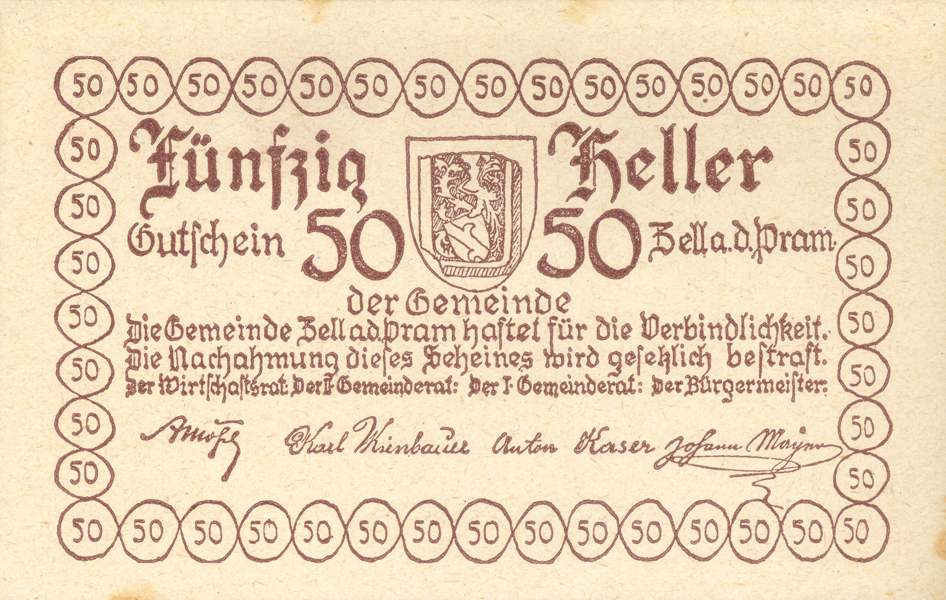 50 50 50 50 50 50 50 50 50 50 50 50 50 50 50
50 Fünfzig Heller 50
50 Gutschein 50 50 Zell a. d. Pram. 50
50 der Gemeinde 50
50 Die Gemeinde Zell a.d. Pram haftet für die Verbindlichkeit. 50
50 Die Nachahmung dieses Scheines wird gesetzlich bestraft. 50
Der Wirtschaftsrat: Der II· Gemeinderat: Der I· Gemeinderat: Der Bürgermeister:
50 Karl Anton Kaser Johann Mayer 50
50 50
50 50 50 50 50 50 50 50 50 50 50 50 50 50 50